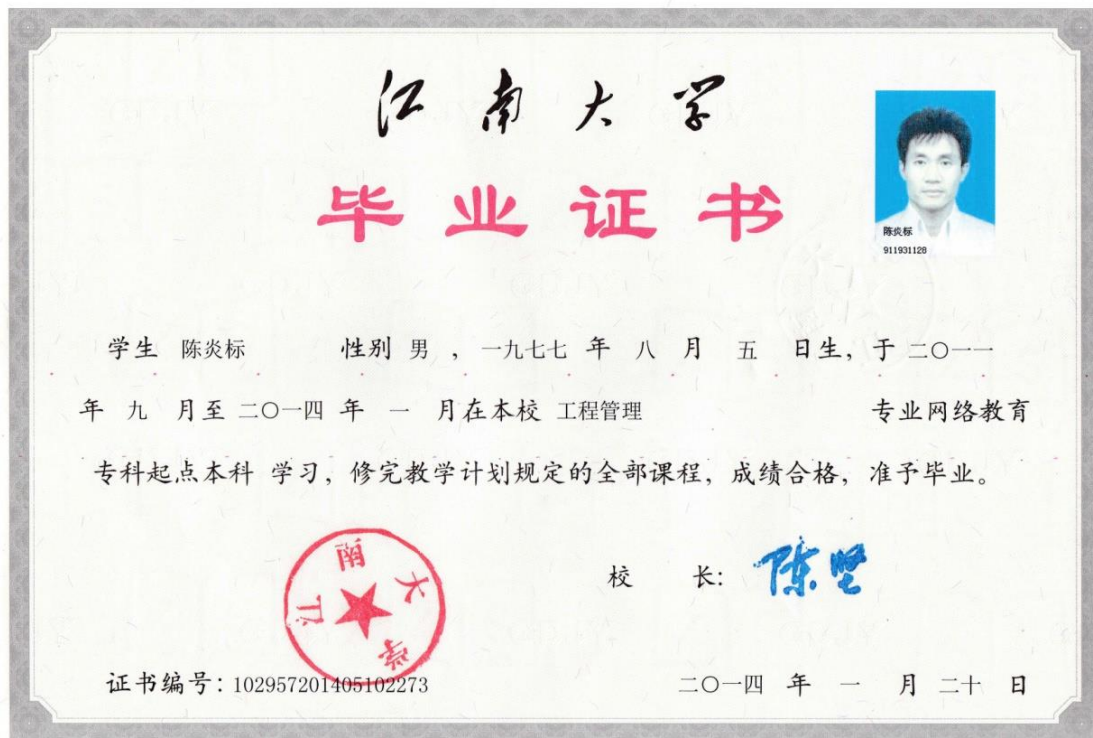 江南大学
毕业证书
陈炎标
911931128
学生 陈炎标 性别 男 ，一九七七 年 八 月 五 日生，于 二〇一一
年 九 月至 二〇一四 年 一 月在本校 工程管理 专业网络教育
专科起点本科 学习，修完教学计划规定的全部课程，成绩合格，准予毕业。
江南大学
校 长：陈坚
证书编号：102957201405102273
二〇一四 年 一 月 二十 日